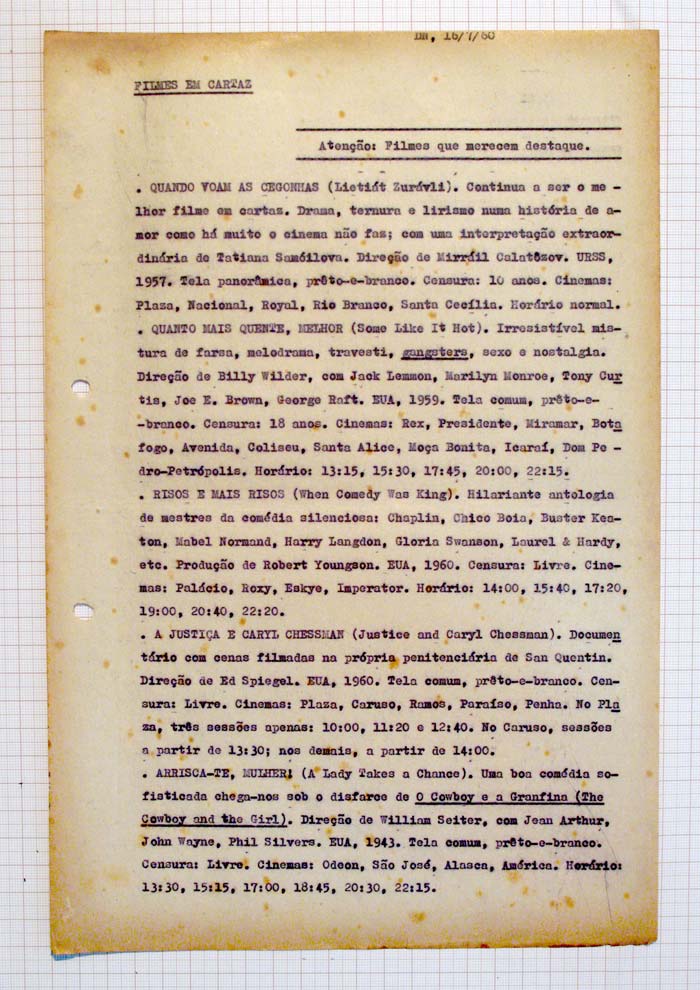 DN, 16/7/60
FILMES EM CARTAZ
Atenção: Filmes que merecem destaque.
. QUANDO VOAM AS CEGONHAS (Lietiát Zurávli). Continua a ser o me -
lhor filme em cartaz. Drama, ternura e lirismo numa história de a-
mor como há muito o cinema não faz; com uma interpretação extraor-
dinária de Tatiana Samóilova. Direção de Mirráil Calatôzov. URSS,
1957. Tela panorâmica, prêto-e-branco. Censura: 10 anos. Cinemas:
Plaza, Nacional, Royal, Rio Branco, Santa Cecília. Horário normal.
. QUANTO MAIS QUENTE, MELHOR (Some Like It Hot). Irresistível mis-
tura de farsa, melodrama, travesti, gangsters, sexo e nostalgia.
Direção de Billy Wilder, com Jack Lemmon, Marilyn Monroe, Tony Cur
tis, Joe E. Brown, George Raft. EUA, 1959. Tela comum, prêto-e-
-branco. Censura: 18 anos. Cinemas: Rex, Presidente, Miramar, Bota
fogo, Avenida, Coliseu, Santa Alice, Moça Bonita, Icaraí, Dom Pe -
dro-Petrópolis. Horário: 13:15, 15:30, 17:45, 20:00, 22:15.
. RISOS E MAIS RISOS (When Comedy Was King). Hilariante antologia
de mestres da comédia silenciosa: Chaplin, Chico Boia, Buster Kea-
ton, Mabel Normand, Harry Langdon, Gloria Swanson, Laurel & Hardy,
etc. Produção de Robert Youngson. EUA, 1960. Censura: Livre. Cine-
mas: Palácio, Roxy, Eskye, Imperator. Horário: 14:00, 15:40, 17:20,
19:00, 20:40, 22:20.
. A JUSTIÇA E CARYL CHESSMAN (Justice and Caryl Chessman). Documen
tário com cenas filmadas na própria penitenciária de San Quentin.
Direção de Ed Spiegel. EUA, 1960. Tela comum, prêto-e-branco. Cen-
sura: Livre. Cinemas: Plaza, Caruso, Ramos, Paraíso, Penha. No Pla
za, três sessões apenas: 10:00, 11:20 e 12:40. No Caruso, sessões
a partir de 13:30; nos demais, a partir de 14:00.
. ARRISCA-TE, MULHER! (A Lady Takes a Chance). Uma boa comédia so-
fisticada chega-nos sob o disfarce de O Cowboy e a Granfina (The
Cowboy and the Girl). Direção de William Seiter, com Jean Arthur,
John Wayne, Phil Silvers. EUA, 1943. Tela comum, prêto-e-branco.
Censura: Livre. Cinemas: Odeon, São José, Alasca, América. Horário:
13:30, 15:15, 17:00, 18:45, 20:30, 22:15.